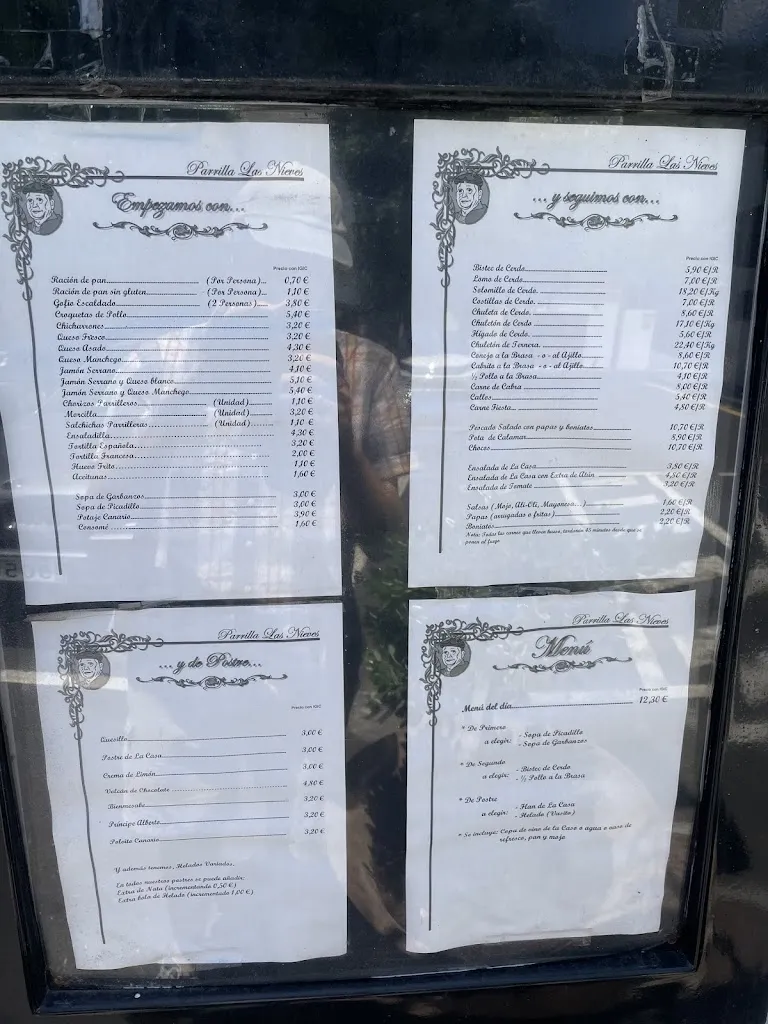 Parrilla Las Nieves
Empezamos con...
Precio con IGIC
Ración de pan (Por Persona)... 0,70 €
Ración de pan sin gluten (Por Persona)... 1,10 €
Gofio Escaldado (2 Personas)... 3,80 €
Croquetas de Pollo 5,40 €
Chicharrones 3,20 €
Queso Fresco 3,20 €
Queso Asado 4,30 €
Queso Manchego 3,20 €
Jamón Serrano 4,10 €
Jamón Serrano y Queso blanco 5,10 €
Jamón Serrano y Queso Manchego 5,40 €
Chorizos Parrilleros (Unidad) 1,10 €
Morcilla (Unidad) 3,20 €
Salchichas Parrilleras (Unidad) 1,10 €
Ensaladilla 4,30 €
Tortilla Española 3,20 €
Tortilla Francesa 2,00 €
Huevo Frito 1,10 €
Aceitunas 1,60 €
Sopa de Garbanzos 3,00 €
Sopa de Picadillo 3,00 €
Potaje Canario 3,90 €
Consomé 1,60 €
Parrilla Las Nieves
... y seguimos con...
Precio con IGIC
Bistec de Cerdo 5,90 €/R
Lomo de Cerdo 7,00 €/R
Solomillo de Cerdo. 18,20 €/Kg
Costillas de Cerdo. 7,00 €/R
Chuleta de Cerdo. 8,60 €/R
Chuletón de Cerdo 17,10 €/Kg
Hígado de Cerdo. 5,60 €/R
Chuletón de Ternera. 22,40 €/Kg
Conejo a la Brasa - o - al Ajillo 8,60 €/R
Cabrito a la Brasa - o - al Ajillo 10,70 €/R
½ Pollo a la Brasa 4,10 €/R
Carne de Cabra 8,00 €/R
Callos 5,40 €/R
Carne Fiesta 4,80 €/R
Pescado Salado con papas y boniatos 10,70 €/R
Pota de Calamar 8,90 €/R
Chocos 10,70 €/R
Ensalada de La Casa 3,80 €/R
Ensalada de La Casa con Extra de Atún 4,80 €/R
Ensalada de Tomate 3,20 €/R
Salsas (Mojo, Ali-Oli, Mayonesa...) 1,60 €/R
Papas (arrugadas o fritas) 2,20 €/R
Boniatos 2,20 €/R
Nota: Todas las carnes que lleven hueso, tardarán 45 minutos desde que se
ponen al fuego
Parrilla Las Nieves
... y de Postre...
Precio con IGIC
Quesillo 3,00 €
Postre de La Casa 3,00 €
Crema de Limón 3,00 €
Volcán de Chocolate 4,80 €
Bienmesabe 3,20 €
Príncipe Alberto 3,20 €
Polvito Canario 3,20 €
Y además tenemos, Helados Variados.
En todos nuestros postres se puede añadir:
Extra de Nata (incrementando 0,50 €)
Extra bola de Helado (incrementando 1,00 €)
Parrilla Las Nieves
Menú
Precio con IGIC
Menú del día 12,30 €
* De Primero
a elegir: - Sopa de Picadillo
- Sopa de Garbanzos
* De Segundo
a elegir: - Bistec de Cerdo
- ½ Pollo a la Brasa
* De Postre
a elegir: - Flan de La Casa
- Helado (Vasito)
* Se incluye: Copa de vino de la Casa o agua o vaso de
refresco, pan y mojo